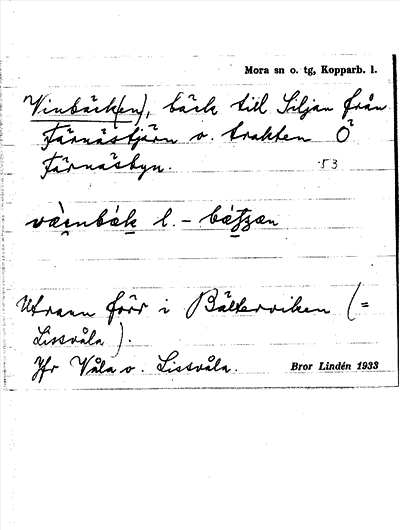 Mora sn o. tg, Kopparb. l.
Vinbäck(en), bäck till Siljan från
Färnästjärn o. trakten Ö
Färnäsbyn. 53
l. –
Utrann förr i Bälterviken (=
Lissvåla).
Jfr Våla o. Lissvåla. Bror Lindén 1933